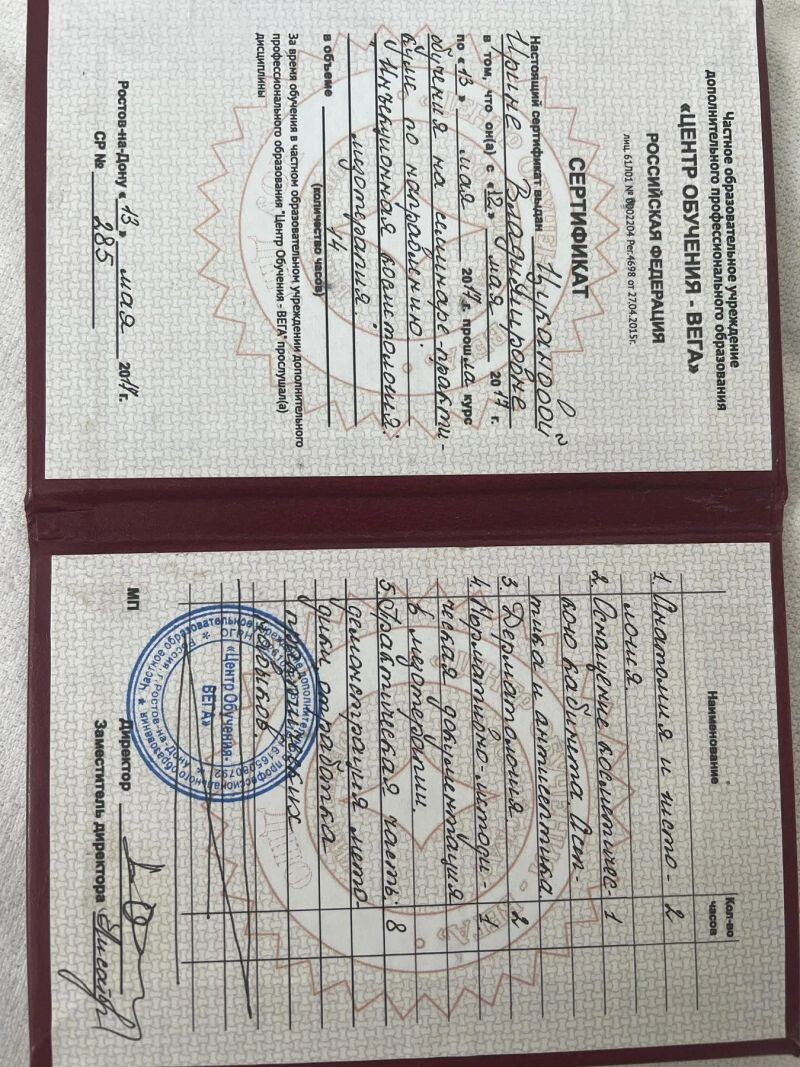 Частное образовательное учреждение
дополнительного профессионального образования
«ЦЕНТР ОБУЧЕНИЯ - ВЕГА»
РОССИЙСКАЯ ФЕДЕРАЦИЯ
лиц. 61Л01 № 0002204 Рег.4698 от 27.04.2015г.
СЕРТИФИКАТ
Настоящий сертификат выдан Цикановой
Ирине Владимировне
в том, что он(а) с «12» мая 2017 г.
по «13» мая 2017 г. прошла курс
обучения на семинаре-практи-
куме по направлению:
"Инъекционная косметология:
мезотерапия."
в объеме 14
(количество часов)
За время обучения в частном образовательном учреждении дополнительного
профессионального образования "Центр Обучения - ВЕГА" прослушал(а)
дисциплины
Ростов-на-Дону «13» мая 2017 г.
СР № 285
Наименование Кол-во часов
1. Анатомия и гисто- 2
логия.
2. Оснащение косметичес- 1
кого кабинета. Асеп-
тика и антисептика.
3. Дерматология. 2
4. Нормативно-методи- 1
ческая документация
в мезотерапии.
5. Практическая часть: 8
демонстрация мето-
дики, отработка
практических
навыков.
«Центр Обучения-
ВЕГА»
МП Директор
Заместитель директора